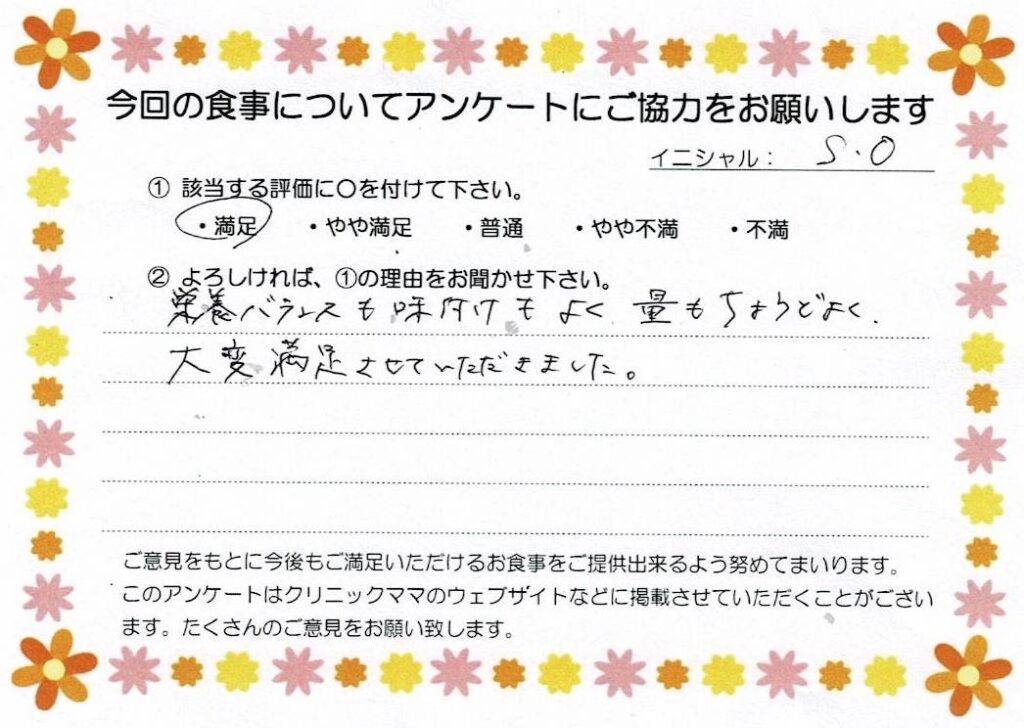 今回の食事についてアンケートにご協力をお願いします
イニシャル： S.O
① 該当する評価に〇を付けて下さい。
・満足 ・やや満足 ・普通 ・やや不満 ・不満
② よろしければ、①の理由をお聞かせ下さい。
栄養バランスも味付けもよく 量もちょうどよく、
大変満足させていただきました。
ご意見をもとに今後もご満足いただけるお食事をご提供出来るよう努めてまいります。
このアンケートはクリニックママのウェブサイトなどに掲載させていただくことがござい
ます。たくさんのご意見をお願い致します。